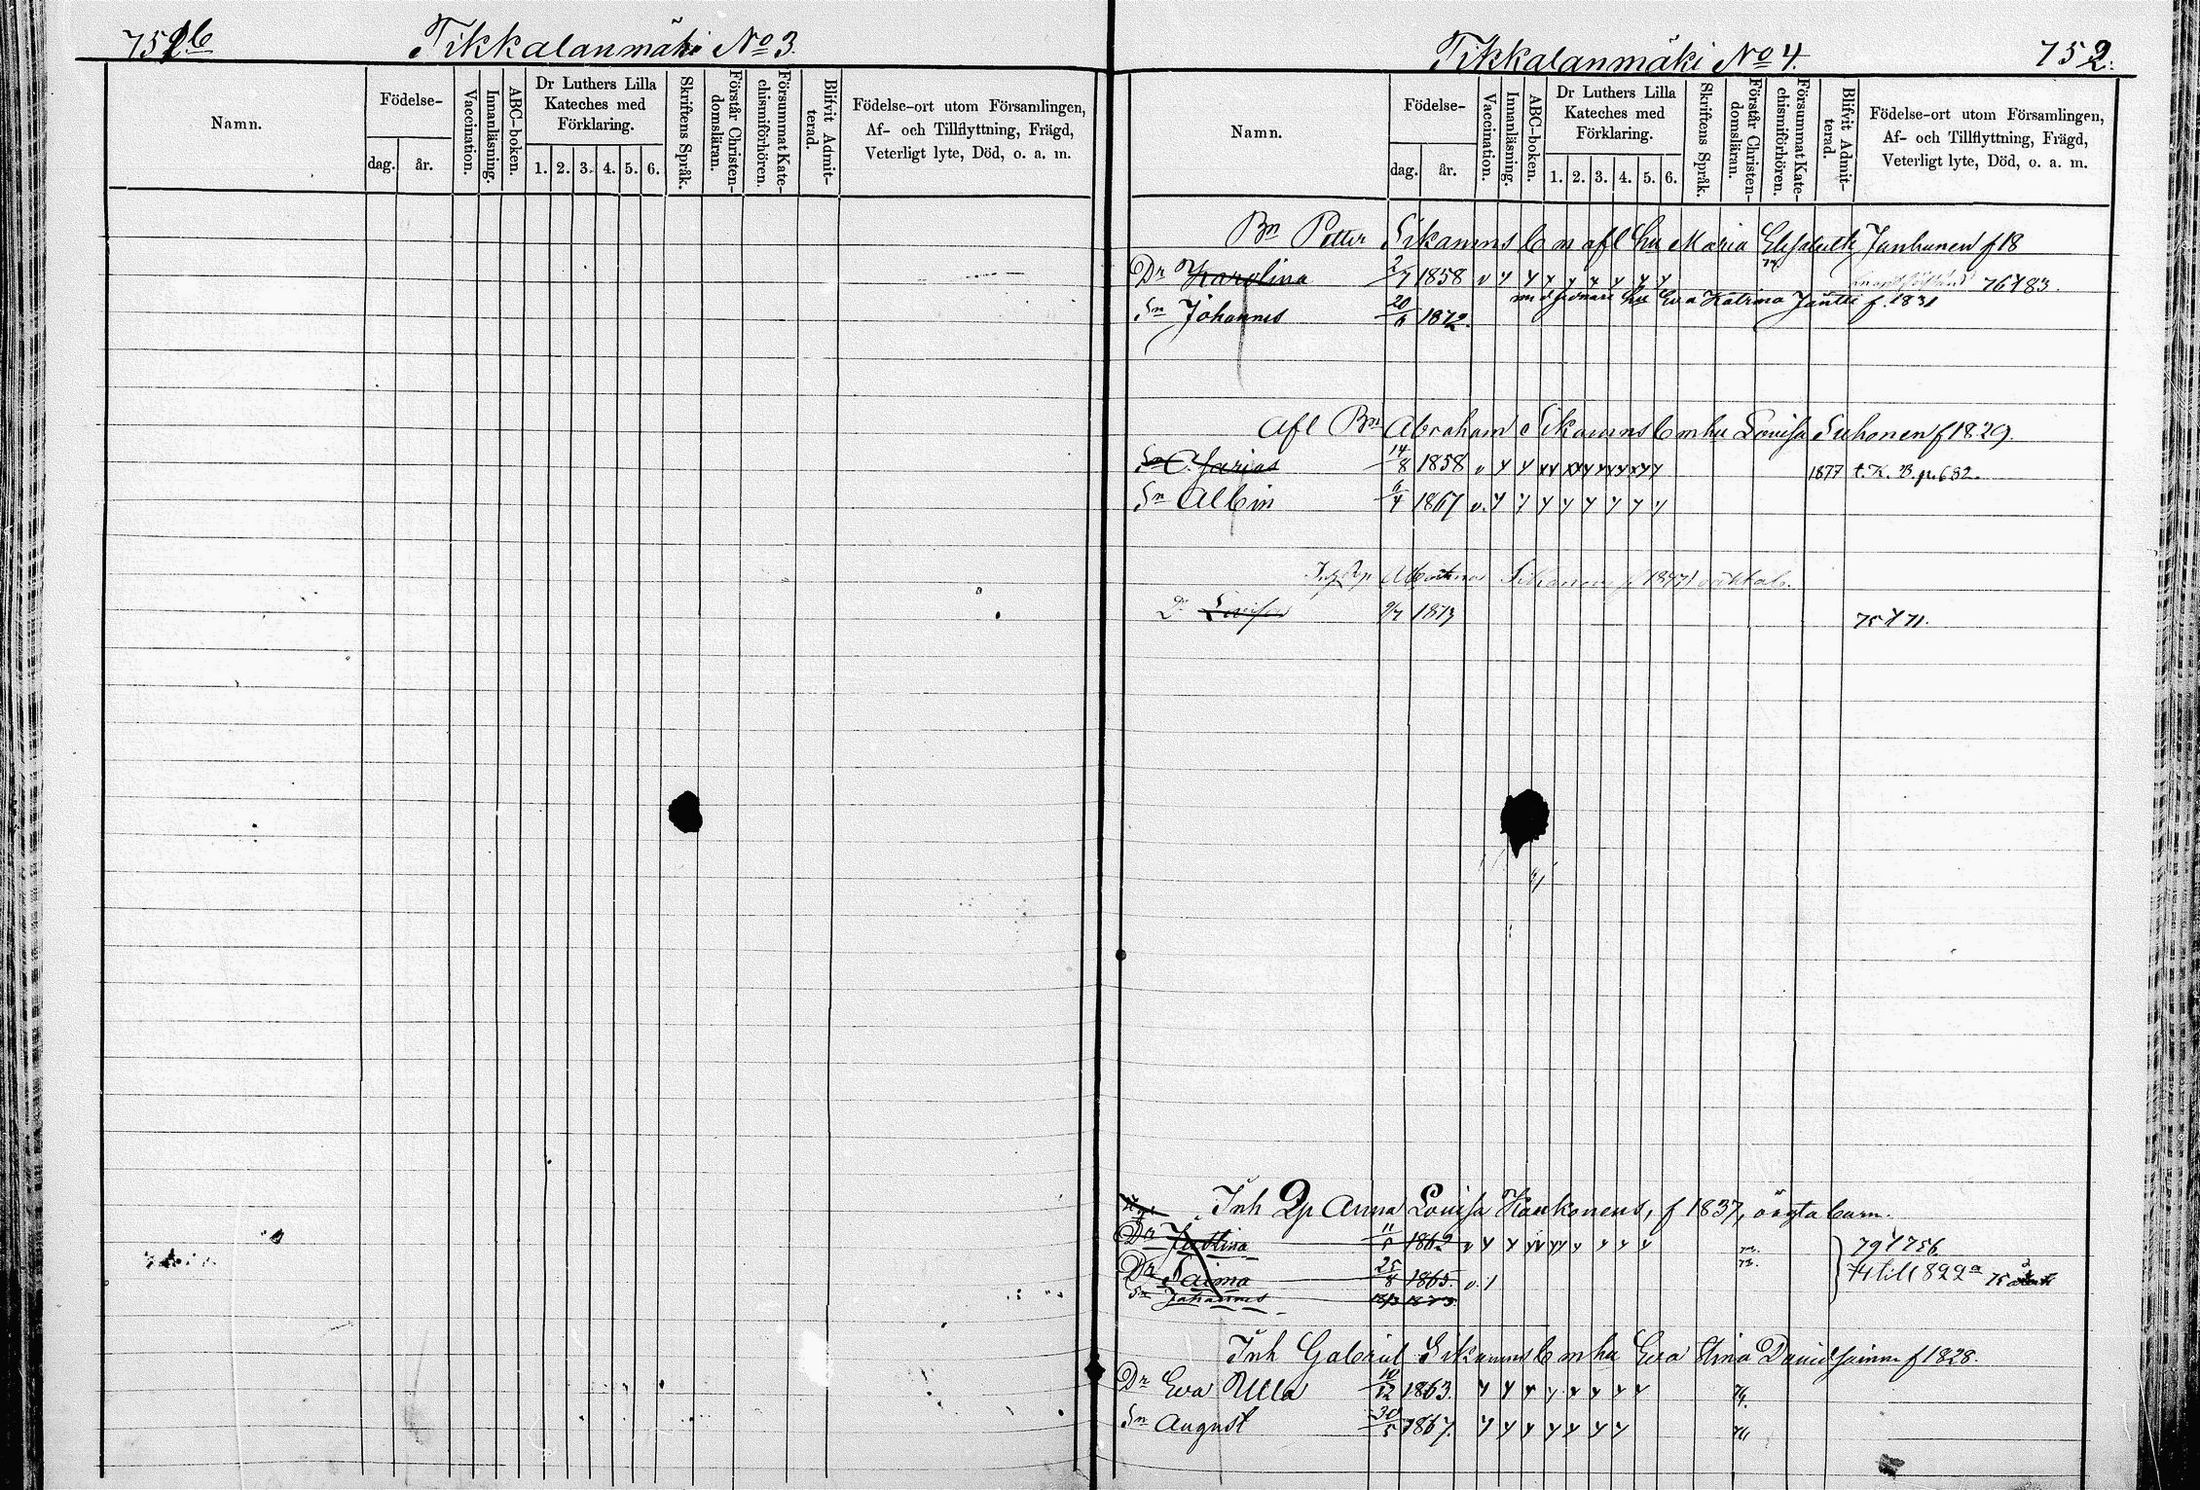 Tikkalanmäki No 3.
Namn.
Födelse-
dag.
år.
Vaccination.
Innanläsning.
ABC-boken.
Dr Luthers Lilla
Kateches med
Förklaring.
1. 2. 3. 4. 5. 6.
Skriftens Språk.
Förstår Christen-
domsläran.
Försummat Kate-
chismiförhören.
Blifvit Admit-
terad.
Födelse-ort utom Församlingen,
Af- och Tillflyttning, Frägd,
Veterligt lyte, Död, o. a. m.
Tikkalanmäki No 4. 752.
Namn.
Födelse-
dag.
år.
Vaccination.
Innanläsning.
ABC-boken.
Dr Luthers Lilla
Kateches med
Förklaring.
1. 2. 3. 4. 5. 6.
Skriftens Språk.
Förstår Christen-
domsläran.
Försummat Kate-
chismiförhören.
Blifvit Admit-
terad.
Födelse-ort utom Församlingen,
Af- och Tillflyttning, Frägd,
Veterligt lyte, Död, o. a. m.
Bn Petter Sikanens b m afl hu Maria Elisabeth Janhunen f 18
Dr Karolina 2/7 1858 v y y y y y y y y 76 f 83.
hu Eva Katrina Jäntti f. 1831
Sn Johannes 20/6 1872.
Afl Bn Abraham Sikanens b m hu Lovisa Suhonen f 1829.
Sn Asarias 14/8 1858 v 1877 t. K. B. p. 682.
Sn Albin 6/4 1867 v. y y y y y y y y
Dr Lovisa 9/7 1873 75 f 71.
Inh Qp Anna Lovisa Haukonens, f 1837, oägta barn.
Dr Justina 11/5 1862 79 f 756
Dr Saima 25/8 1865. v. 1 74 till 822a
Sn Johannes 1873.
Inh Gabriel Sikanens b m hu Eva Stina Davidsainen f 1828.
Dr Eva Ulla 10/12 1863. y y y y y y y y 74.
Sn August 30/5 1867. y y y y y y y 74